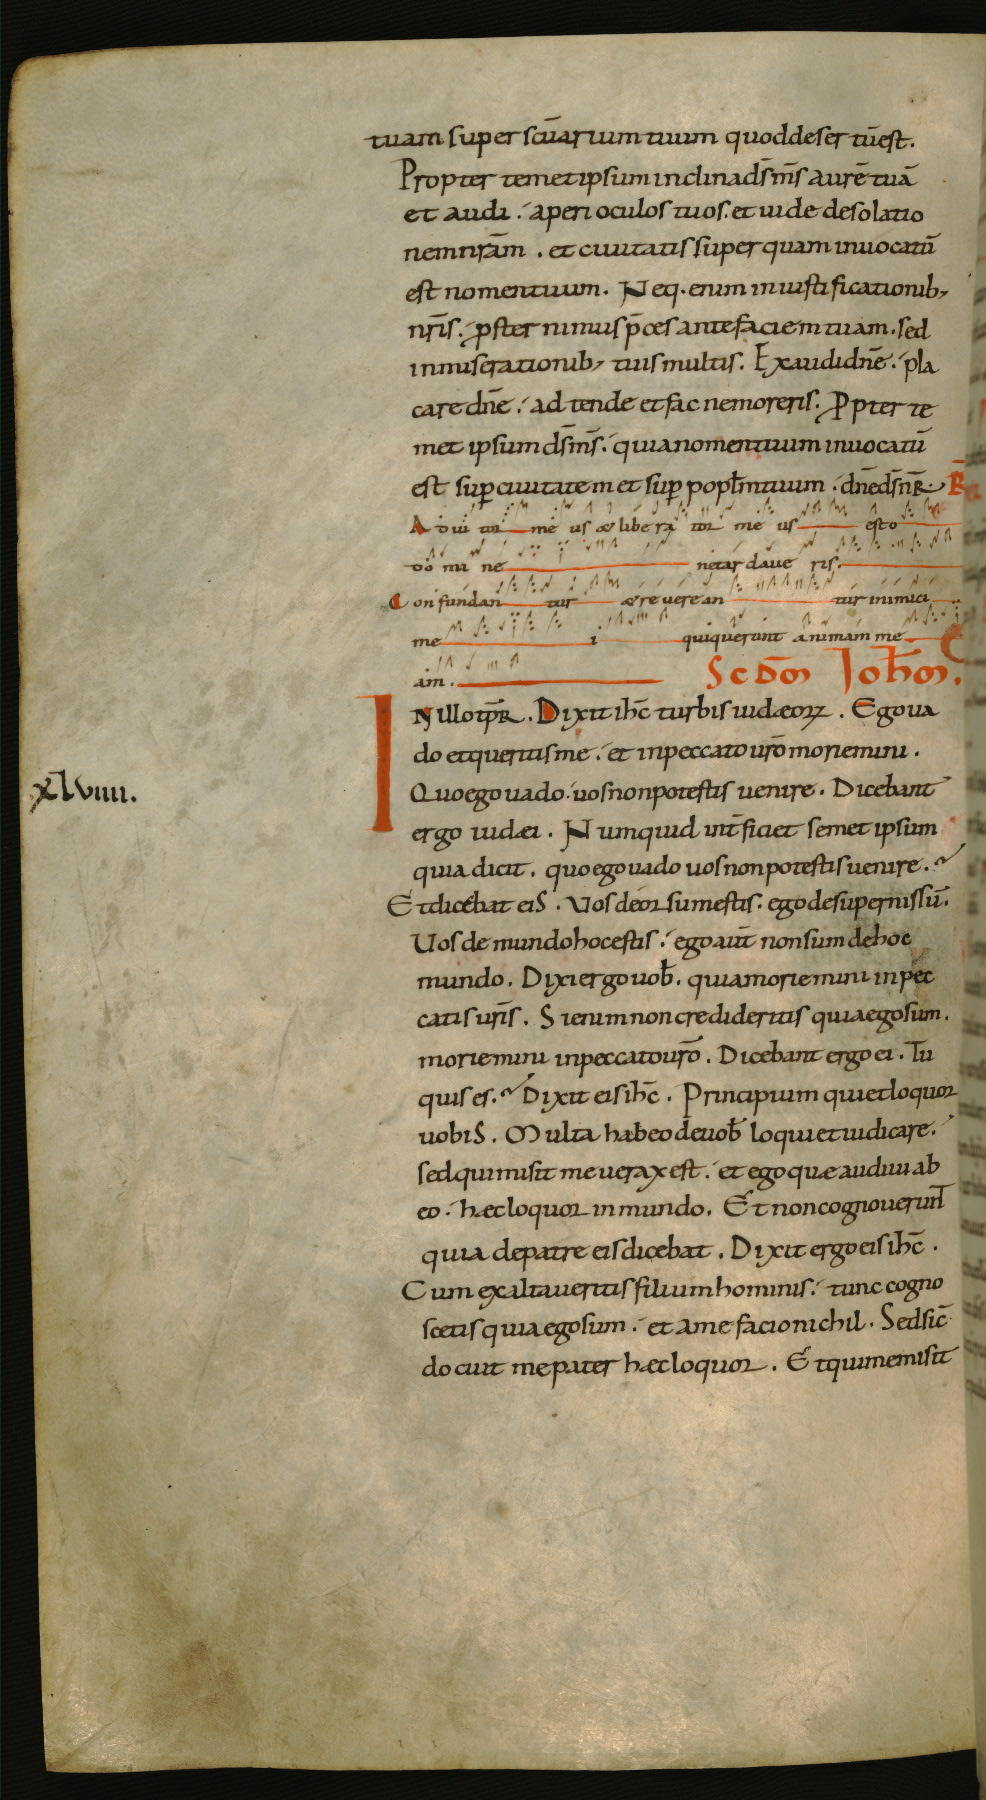 tuam super scūarium tuum quod deser tū est.
Propter temetipsum inclina d̄s m̄s aurē tuā
et audi. aperi oculos tuos. et uide desolatio
nem nr̄am. et ciuitatis super quam inuocatū
est nomen tuum. Neq. enim in iustificationib;
nr̄is. p̱sternimus p̄ces ante faciem tuam. sed
in miserationib; tuis multis. Exaudi dn̄e. pla
care dn̄e. adtende et fac nemoreris. P̱pter te
met ipsum d̄s m̄s. quia nomen tuum inuocatū
est sup̱ ciuitatem et sup̱ popl̄m tuum. dn̄e d̄s nr̄. R̄
Adiutor meus & liberator meus esto
domine ne tardaueris.
Confundantur & reuereantur inimici
mei qui querunt animam me
am. Scd̄m Ioh̄m.
IN illo tp̄r. Dixit ih̄c turbis iudæoꝝ. Ego ua
do et queritis me. et in peccato ur̄o moriemini.
Quo ego uado. uos non potestis uenire. Dicebant
xlviiii.
ergo iudæi. Numquid int̄ficiet semet ipsum
quia dicit. quo ego uado uos non potestis uenire.
Et dicebat eis. Vos deorsum estis. ego desupernis sū.
Uos de mundo hoc estis. ego aūt non sum de hoc
mundo. Dixi ergo uob̄. quia moriemini in pec
catis ur̄is. Si enim non credideritis quia ego sum.
moriemini in peccato ur̄o. Dicebant ergo ei. Tu
quis es. Dixit eis ih̄c. Principium qui et loquor
uobis. Multa habeo de uob̄ loqui et iudicare.
sed qui misit me uerax est. et ego quæ audiui ab
eo. hæc loquor in mundo. Et non cognouerunt
quia de patre eis dicebat. Dixit ergo eis ih̄c.
Cum exaltaueritis filium hominis. tunc cogno
scetis quia ego sum. et a me facio nichil. Sed sic̄
docuit me pater hæc loquor. Et qui me misit